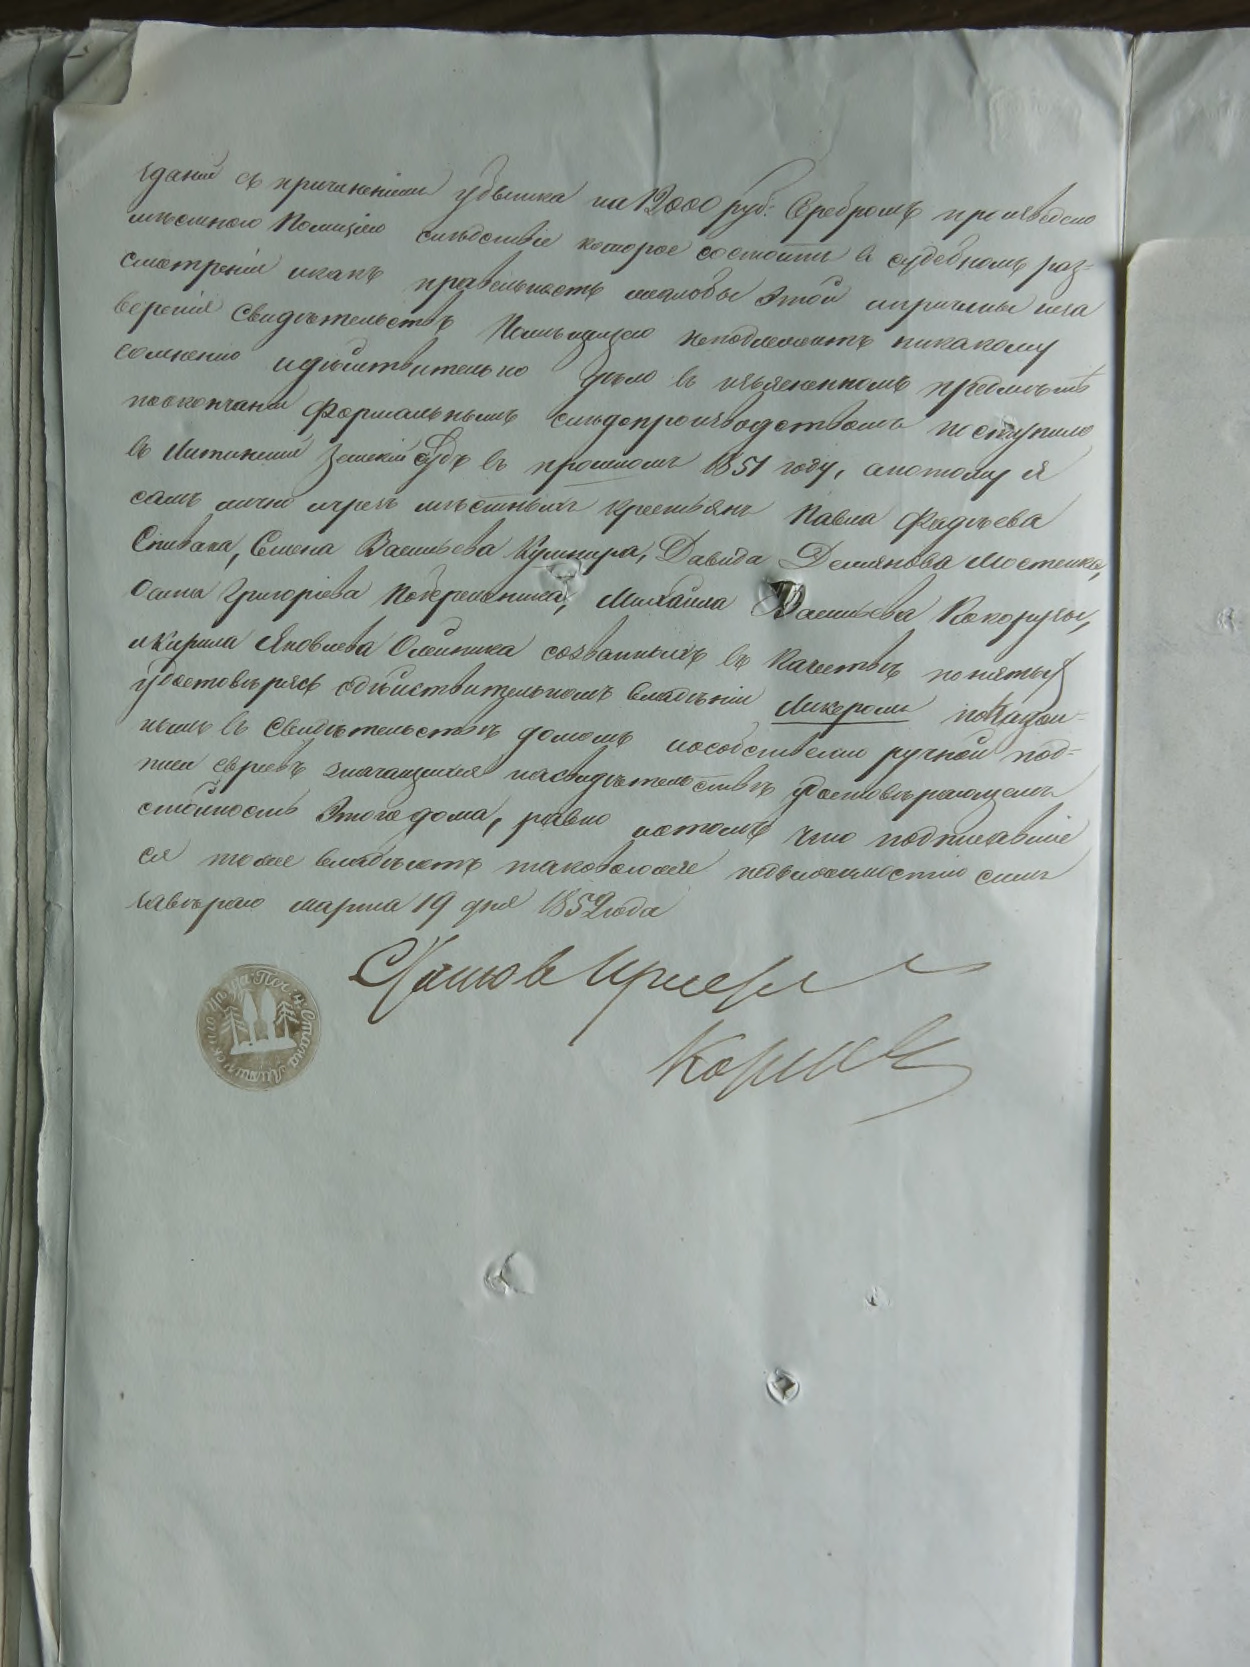 зданий съ причиненіем убытка на 12000 руб: Серебромъ произведено
мѣстною Полиціею слѣдствіе которое состоитъ в судебномъ раз=
смотреніи икакъ правельность жалобы Этой ипричины
верения Свидѣтельствъ Полиціею неподлежитъ никакому
сомнению идѣйствительно дѣло в изъясненномъ предметѣ
поокончании Формальнымъ следопроизводствомъ поступило
въ Литинский Земский Судъ въ прошломъ 1851 году, апотому я
самъ лично чрезъ мѣстныхъ крестьянъ Павла Фадѣева
Спивака, Семена Васильева Кушнира, Давида Демянова Мостенка,
Осипа Григоріева Побережника, Михайла Васильева Кокоружы,
и Кирила Яковлева Олейника созванныхъ въ качествѣ понятых
удостовѣрясь одѣйствительномъ владѣніи Ликерома показан=
нымъ въ Свидѣтельствѣ домомъ исобственно ручной под=
писи евреевъ значащихся насвидѣтельствѣ удостовѣряющемъ
стоимость Этого дома, равно истомъ что подписавшие
ся тоже владѣютъ таковоюже недвижимостию симъ
завѣряю марта 19 дня 1852 года
Становъ Приставъ